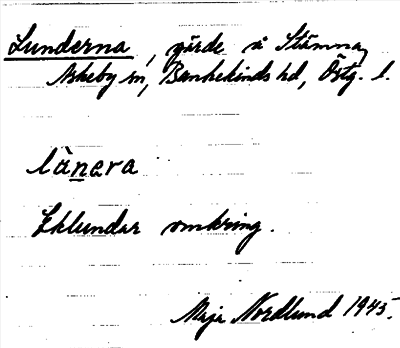 Lunderna, gärde å Stämna,
Askeby sn, Bankekinds hd, Östg. l.
lànera
Eklundar omkring.
Maja Nordlund 1945.